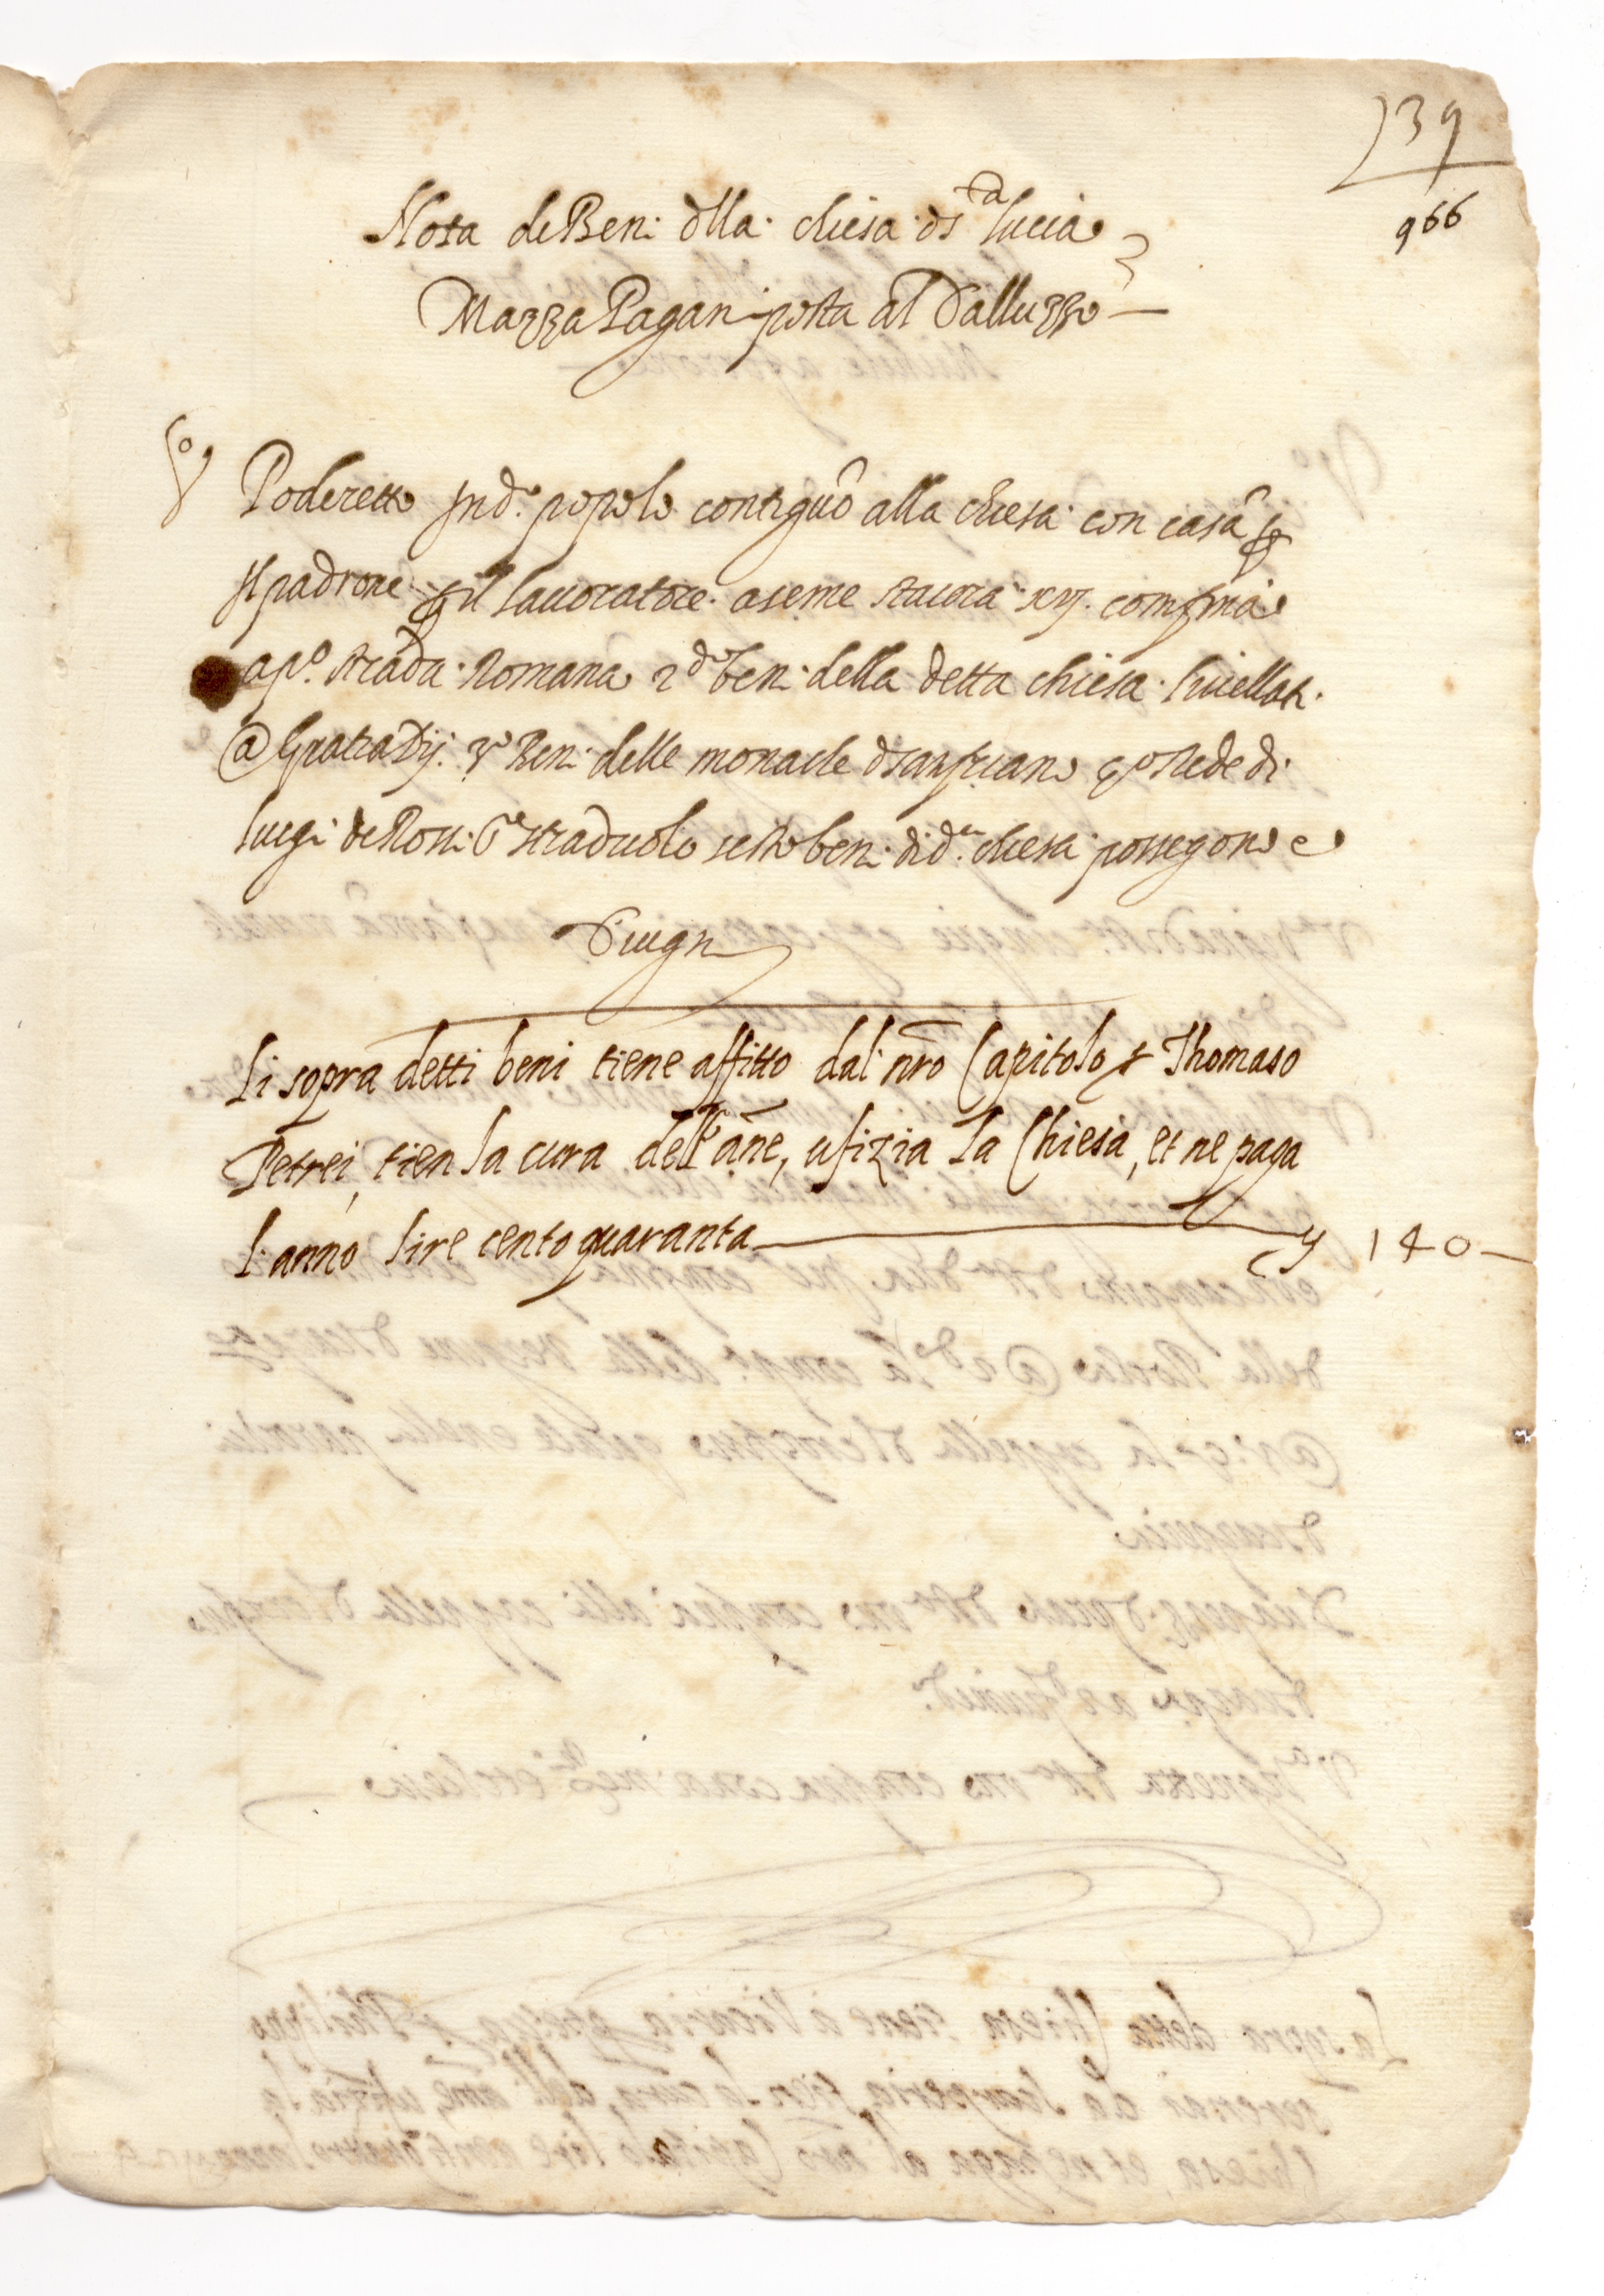 139
966
Nota de Beni dlla chiesa di S.ta lucia
Mazza Pagani posta al Galluzzo
Vo Poderetto in d.o popolo contiguo alla chiesa con casa p
il padrone p il lauoratore a seme staiora xvj. confina
a p.o strada Romana 2do beni della detta chiesa liuellati
@ 3o Beni delle monache 4o Rede di
luigi de Rossi 5o straduolo sesto beni di d.a chiesa possegono e
Giugni
Li sopra detti beni tiene affitto dal nro Capitolo Thomaso
Petrei, tien la cura dell'ane, ufizia la Chiesa, et ne paga
l'anno lire cento quaranta 140